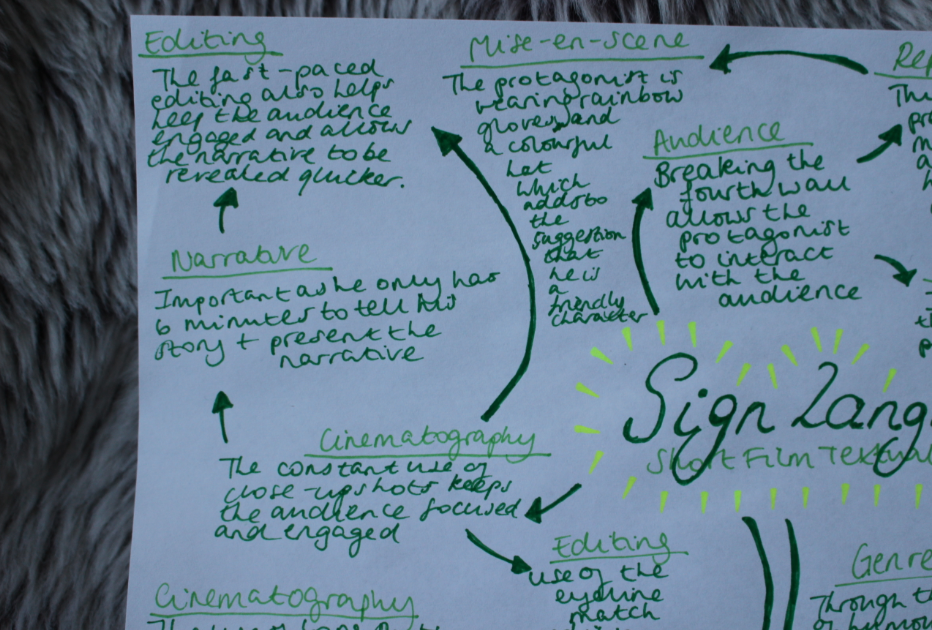 Editing
The fast-paced
editing also helps
keep the audience
engaged and allows
the narrative to be
revealed quicker.
Mise-en-scene
The protagonist is
wearing rainbow
gloves and
a colourful
hat
which
adds to
the
suggestion
that
he is
a
friendly
character
Audience
Breaking the
fourth wall
allows the
protagonist
to interact
with the
audience
Rep
Th
pr
m
a
Narrative
Important as he only has
6 minutes to tell his
story + present the
narrative
Sign Lang
Short Film Textual
Cinematography
The constant use of
close-up shots keeps
the audience focused
and engaged
Editing
use of the
eyeline
match
Genre
Through t
of humou
Cinematography